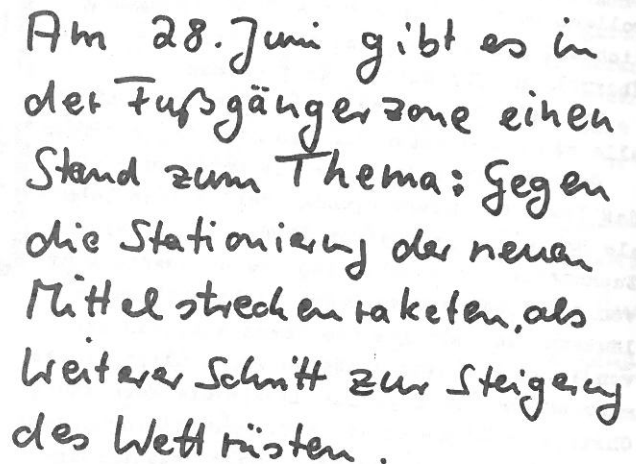 Am 28. Juni gibt es in
der Fußgängerzone einen
Stand zum Thema: Gegen
die Stationierung der neuen
Mittelstreckenraketen, als
weiterer Schritt zur Steigerung
des Wettrüsten.